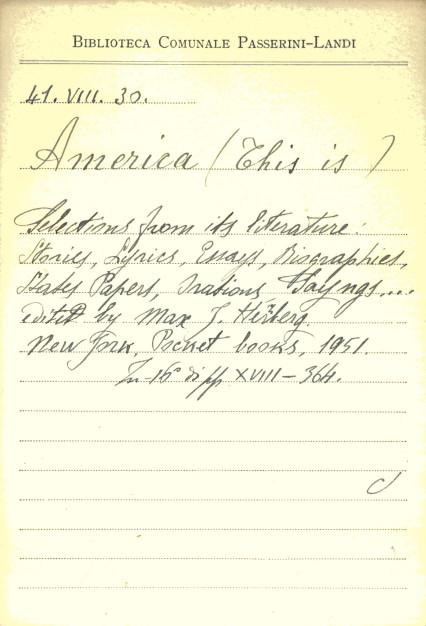 BIBLIOTECA COMUNALE PASSERINI-LANDI
41. VIII. 30.
America (This is)
Selections from its literature:
Stories, Lyrics, Essays, Biographies,
States Papers, Orations, Sayings...
edited by Max J. Herzberg.
New York, Pocket books, 1951.
In-16° di pp XVIII-364.